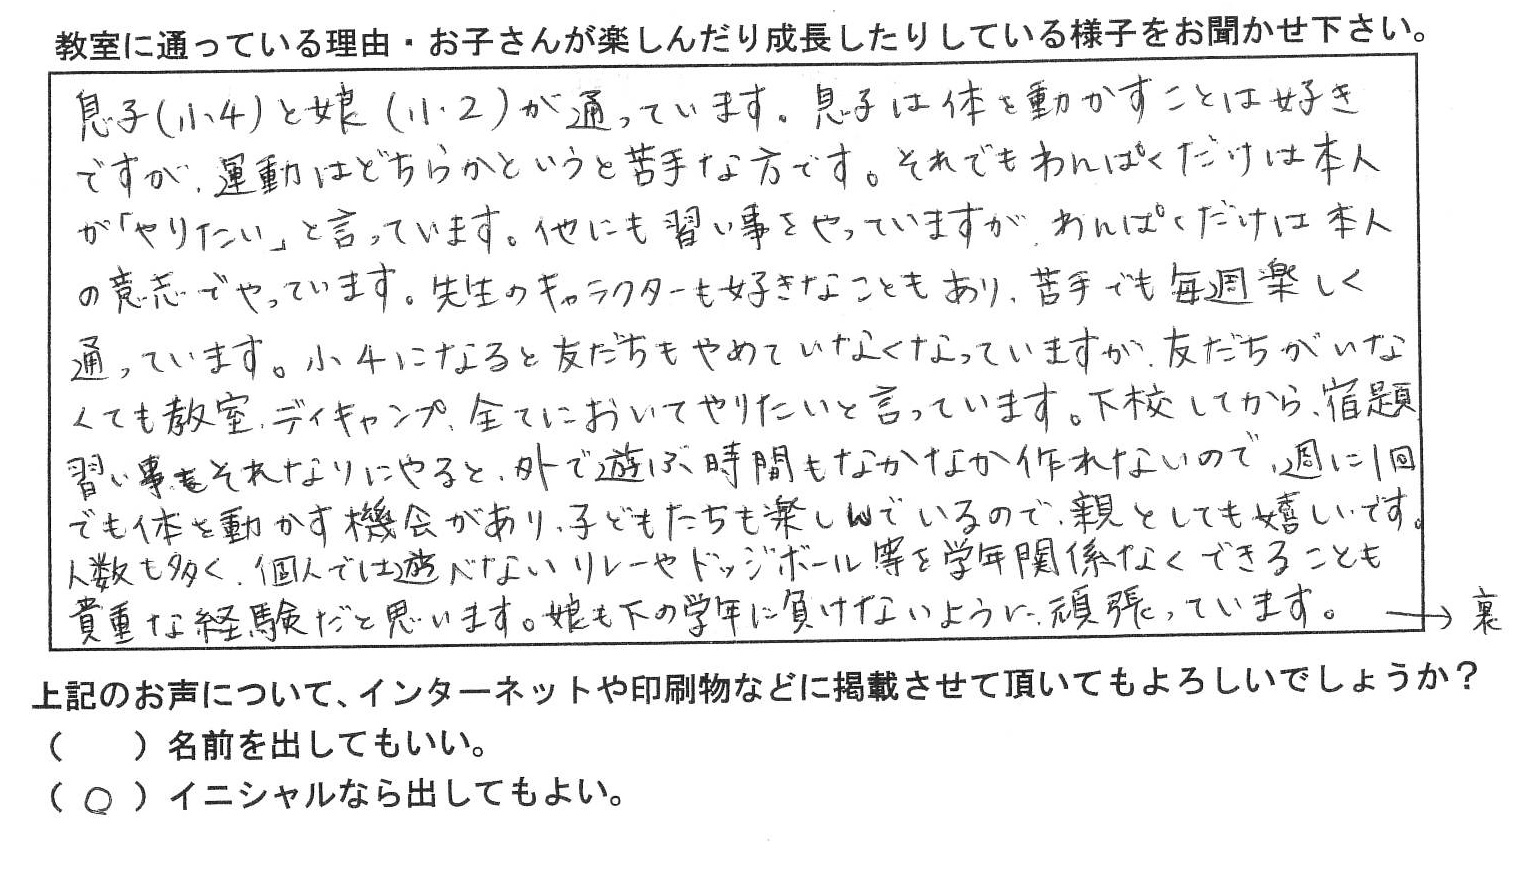 教室に通っている理由・お子さんが楽しんだり成長したりしている様子をお聞かせ下さい。
息子(小4)と娘(小2)が通っています。息子は体を動かすことは好き
ですが、運動はどちらかというと苦手な方です。それでもわんぱくだけは本人
が「やりたい」と言っています。他にも習い事をやっていますが、わんぱくだけは本人
の意志でやっています。先生のキャラクターも好きなこともあり、苦手でも毎週楽しく
通っています。小4になると友だちもやめていなくなっていますが、友だちがいな
くても教室、デイキャンプ、全てにおいてやりたいと言っています。下校してから、宿題
習い事をそれなりにやると、外で遊ぶ時間もなかなか作れないので、週に1回
でも体を動かす機会があり、子どもたちも楽しんでいるので、親としても嬉しいです。
人数も多く、個人では遊べないリレーやドッジボール等を学年関係なくできることも
貴重な経験だと思います。娘も下の学年に負けないように、頑張っています。 → 裏
上記のお声について、インターネットや印刷物などに掲載させて頂いてもよろしいでしょうか?
( ) 名前を出してもいい。
( ○ ) イニシャルなら出してもよい。